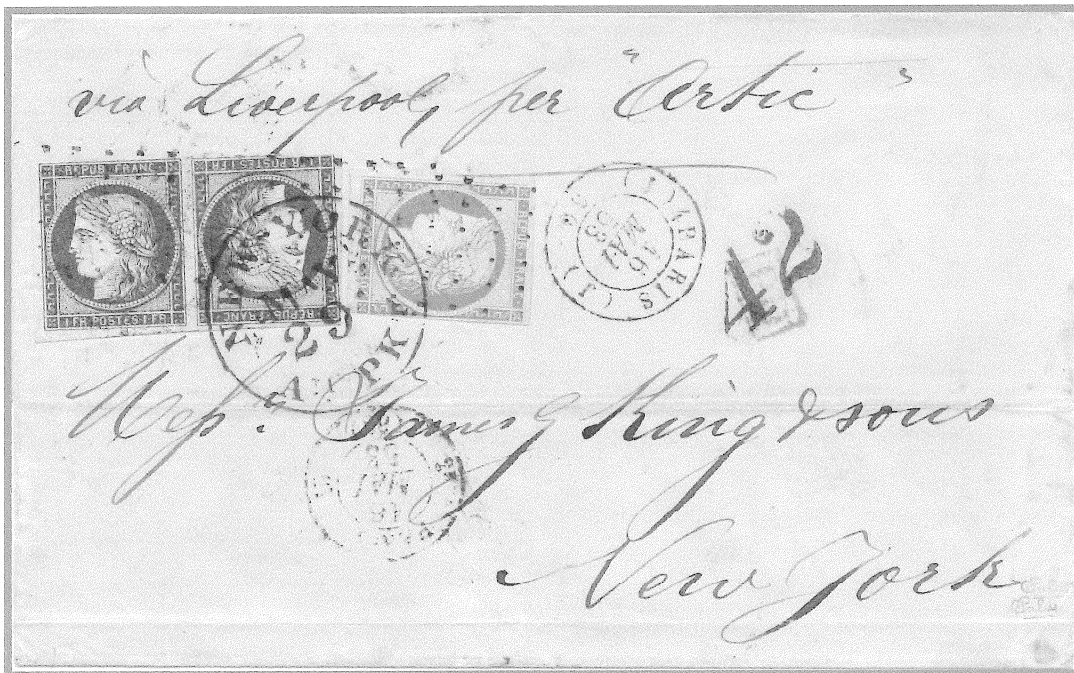 via Liverpool, per "Artic"
REPUB. FRANC.
1 FR. POSTES 1 FR.
REPUB. FRANC.
1 FR. POSTES 1 FR.
REPUB. FRANC.
NEW YORK AM. PKT.
29
PARIS (J)
16
MAI
53
(J)
42
Mess.rs James G King & sons
New York
18
MAI
53